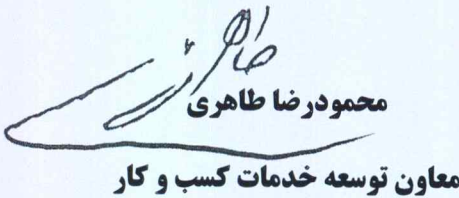 محمودرضا طاهری
معاون توسعه خدمات کسب و کار